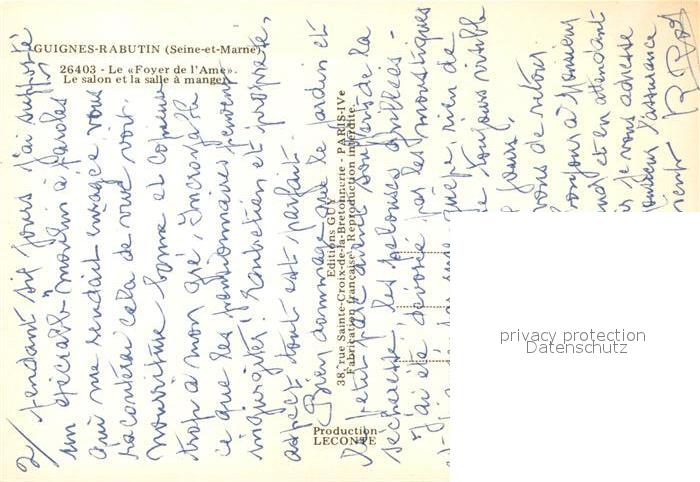 GUIGNES-RABUTIN (Seine-et-Marne)
26403 - Le «Foyer de l'Ame».
Le salon et la salle à manger
Editions GUY
38, rue Sainte-Croix-de-la-Bretonnerie - PARIS-IVe
Fabrication française - Reproduction interdite.
Production
LECONTE
2/ pendant six jours j'ai supporté
un véritable moulin à paroles
qui me rendait enragée vous
raconterai cela de vive voix.
nourriture bonne et copieuse
trop à mon gré, Incroyable
ce que les pensionnaires peuvent
ingurgiter. Entretien et propreté,
aspect tout est parfait.
Bien dommage que le jardin et
le petit parc aient souffert de la
sécheresse, les pelouses grillées -
J'ai été dévorée par les moustiques
guêpe, rien de
toujours visible
jours,
vous de retour.
bonjour à Monsieur
et en attendant
je vous adresse
l'assurance
privacy protection
Datenschutz